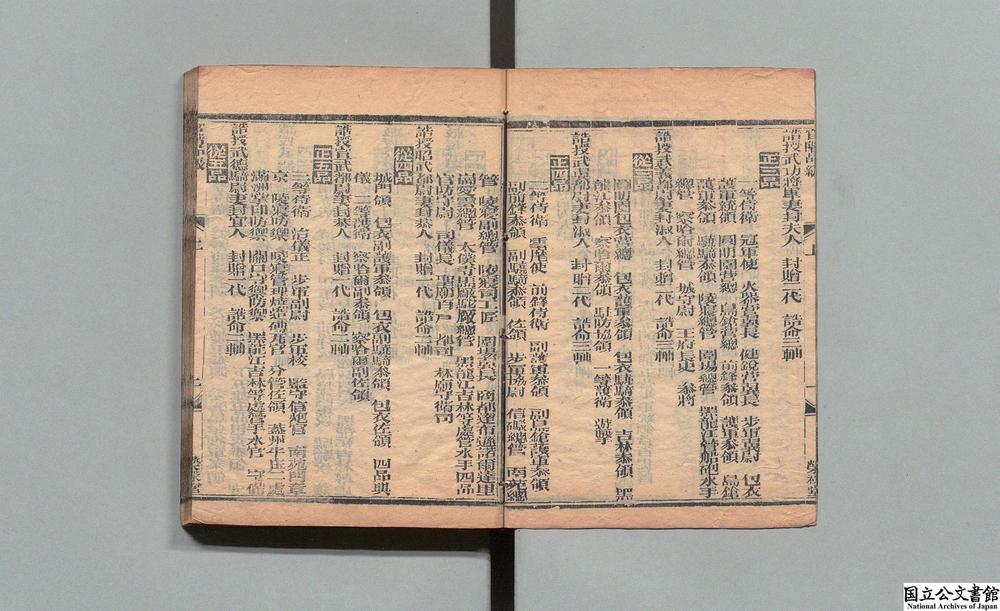 誥授武功將軍妻封夫人　封贈二代　誥命三軸
正三品
一等侍衛　冠軍使　火器營翼長　健銳營翼長　步軍翼尉　包衣
護軍統領　圓明園營總　鳥鎗營總　前鋒參領　護軍參領　鳥鎗
護軍參領　驍騎參領　陵寢總管　圍場總管　黑龍江管船砲水手
總管　察哈爾總管　城守尉　王府長史　參將
從三品
誥授武義都尉妻封淑人　封贈二代　誥命三軸
圓明園包衣營總　包衣護軍參領　包衣驍騎參領　吉林參領　黑
龍江參領　察哈爾參領　駐防協領　一等護衛　遊擊
誥授武翼都尉妻封淑人　封贈二代　誥命三軸
正四品
二等侍衛　雲麾使　前鋒侍衛　副護軍參領　副鳥鎗護軍參領
副前鋒參領　副驍騎參領　佐領　步軍協尉　信礮總管　南苑總
管　陵寢副總管　陵寢司工匠　圍場翼長
黑龍江吉林等處管水手四品
官防守尉　司儀長　聖廟百戶　都司　林廟守衛司
誥授昭武都尉妻封恭人　封贈一代　誥命二軸
從四品
城門領　包衣副護軍參領　包衣副驍騎參領　包衣佐領　四品典
儀　二等護衛　察哈爾副參領　察哈爾副佐領
誥授宣武都尉妻封恭人　封贈一代　誥命二軸
正五品
三等侍衛　治儀正　步軍副尉　步軍校　監守信炮官　南苑門章
京　陵寢防禦　陵寢管理燒造磚瓦官　分管佐領　蓋州牛莊二處
滿洲掌印防禦　關口守禦防禦　黑龍江吉林等處管水手官　守備
誥授武德騎尉妻封宜人　封贈一代　誥命二軸
從五品
国立公文書館
National Archives of Japan